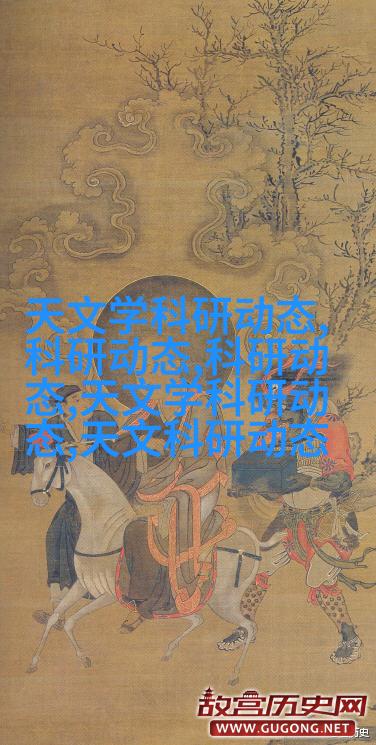 天文学科研动态,
科研动态,科研动
态,天文学科研动
态,天文科研动态
故宫历史网
WWW.GUGONG.NET
历史